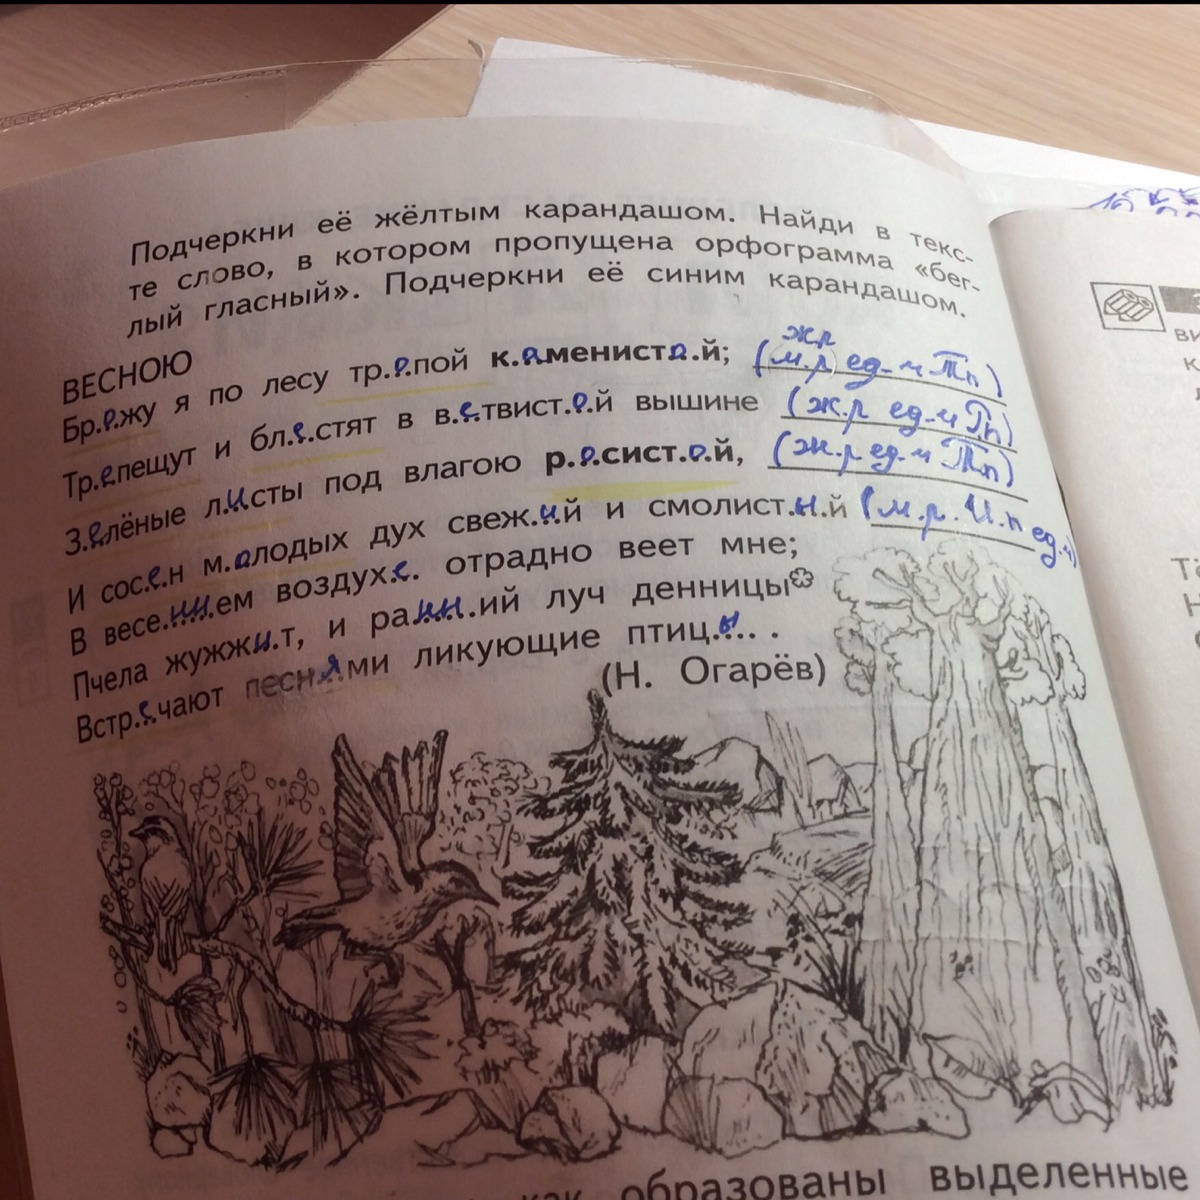 Подчеркни её жёлтым карандашом. Найди в текс-
те слово, в котором пропущена орфограмма «бег-
лый гласный». Подчеркни её синим карандашом.
ВЕСНОЮ
Бр.е.жу я по лесу тр.о.пой к.а.менисто.й; (м.р ед.ч Тп)
жр
Тр.епещут и бл.е.стят в в.е.твист.о.й вышине (ж.р ед.ч Пп)
З.елёные л.и.сты под влагою р.о.сист.о.й, (ж.р ед.ч Тп)
И сос.е.н м.олодых дух свеж.и.й и смолист.ы.й (м.р. И.п ед.ч)
В весе.нн.ем воздух.е. отрадно веет мне;
Пчела жужж.и.т, и ра.нн.ий луч денницы
Встр.е.чают песн.я.ми ликующие птиц.ы. .
(Н. Огарёв)
как образованы выделенные